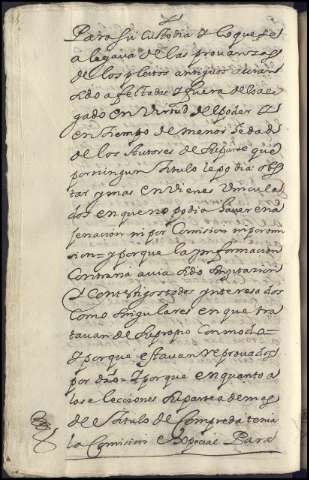 Para su custodia Y lo que se
alegava de las provanzas
de los pleitos antiguos avian
sido afectadas Y fuera de lo ale
gado en virtud del poder
en tiempo de menor hedad
de los Autores de su parte que
por ningun titulo le podia obs
tar y mas en vienes vincula
dos en que no podia haver ena
genación ni por Comision ni permu
sion = y porque la ynformación
Contraria avia sido
Y con testigos todos ynteresados
Como singulares en que tra
tavan de su propio comodo
Y porque estavan reprovados
por dro = Y porque en quanto a
las elecciones su parte demas
del titulo de Compreda tenia
la Comision especial Para